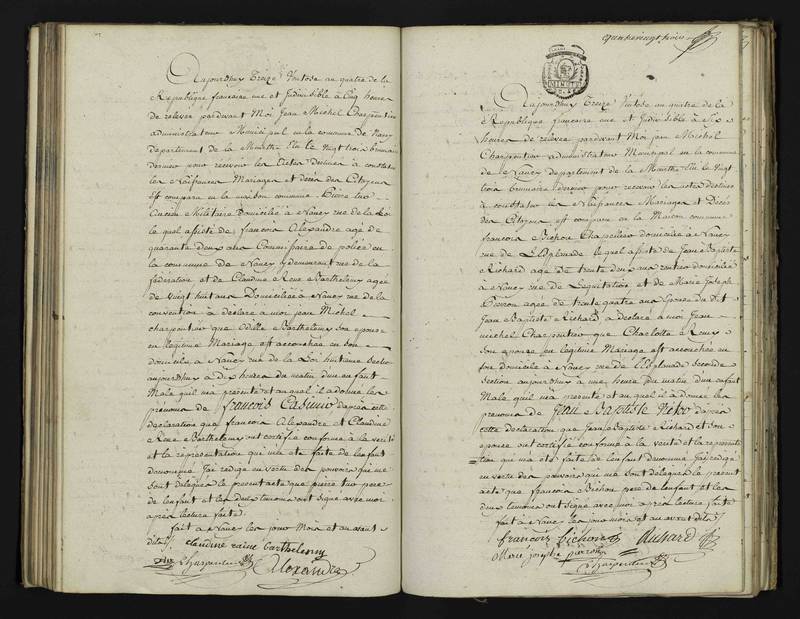 Aujourdhuy Treize Ventose an quatre de la
République francaise une et Indivisible à Cinq heure
de relevée pardevant Moi Jean Michel Charpentier
administrateur Municipal en la commune de Nancy
departement de la Meurthe Elu le Vingt trois brumaire
dernier pour recevoir les Actes destinés à constater
les Naissances Mariages et décès des Citoyens
est comparu en la maison commune Pierre
Militaire Domicilié à Nancy rue de la Loi
lequel assisté de francois Alexandre agé de
quarante deux ans Commissaire de police en
la commune de Nancy y demeurant rue de la
fédération et de Claudine Reine Barthelemy agée
de Vingt huit ans Domiciliée à Nancy rue de la
convention à déclaré à moi jean Michel
charpentier que Odille Barthelemy son epouse
en légitime Mariage est accouchée en son
domicile à Nancy rue de la Loi huitieme Section
aujourdhuy à Dix heures du matin d'un enfant
Male qu'il m'a présenté et auquel il a donné les
prénoms de francois Casimir d'après cette
déclaration que francois Alexandre et Claudine
Reine Barthelemy ont certifié conforme à la verité
et la représentation qui m'a été faite de l'enfant
dénommé J'ai rédigé en vertu des pouvoirs qui me
sont délégués le présent acte que pierre pere
de l'enfant et les deux temoins ont signé avec moi
après lecture faite
fait à Nancy les jour Mois et an avant
dits
claudine raine barthelemy
Charpentier Alexandre
quatrevingt trois
Aujourdhuy Treize Ventose an quatre de la
République francaise une et Indivisible à Six
heures de relevée pardevant Moi jean Michel
Charpentier administrateur Municipal en la commune
de Nancy departement de la Meurthe Elu le Vingt
trois brumaire dernier pour recevoir les actes destinés
à constater les Naissances Mariages et Décès
des Citoyens est comparu en la Maison commune
francois Bichon Chapellier domicilié à Nancy
rue de L'Esplanade lequel assisté de Jean Baptiste
Richard agé de trente deux ans rentier domicilié
à Nancy rue de Legislation et de Marie Joseph
Pierron agée de trente quatre ans Epouse du dit
Jean Baptiste Richard à déclaré à moi Jean
michel Charpentier que Charlotte
Son epouse en légitime Mariage est accouchée en
son domicile à Nancy rue de l'Esplanade seconde
section aujourdhuy à une heure du matin d'un enfant
Male qu'il m'a présenté et auquel il a donné les
prenoms de Jean Baptiste d'apres
cette déclaration que Jean Baptiste Richard et Son
epouse ont certifié conforme à la verité et la représenta
tion qui m'a été faite de l'enfant dénommé J'ai rédigé
en vertu des pouvoirs qui me sont délégués le présent
acte que francois Bichon pere de l'enfant et les
deux temoins ont signé avec moi après lecture faite
fait à Nancy les jour mois et an avant dits
françois bichon Richard
Marie josephe pierron
Charpentier